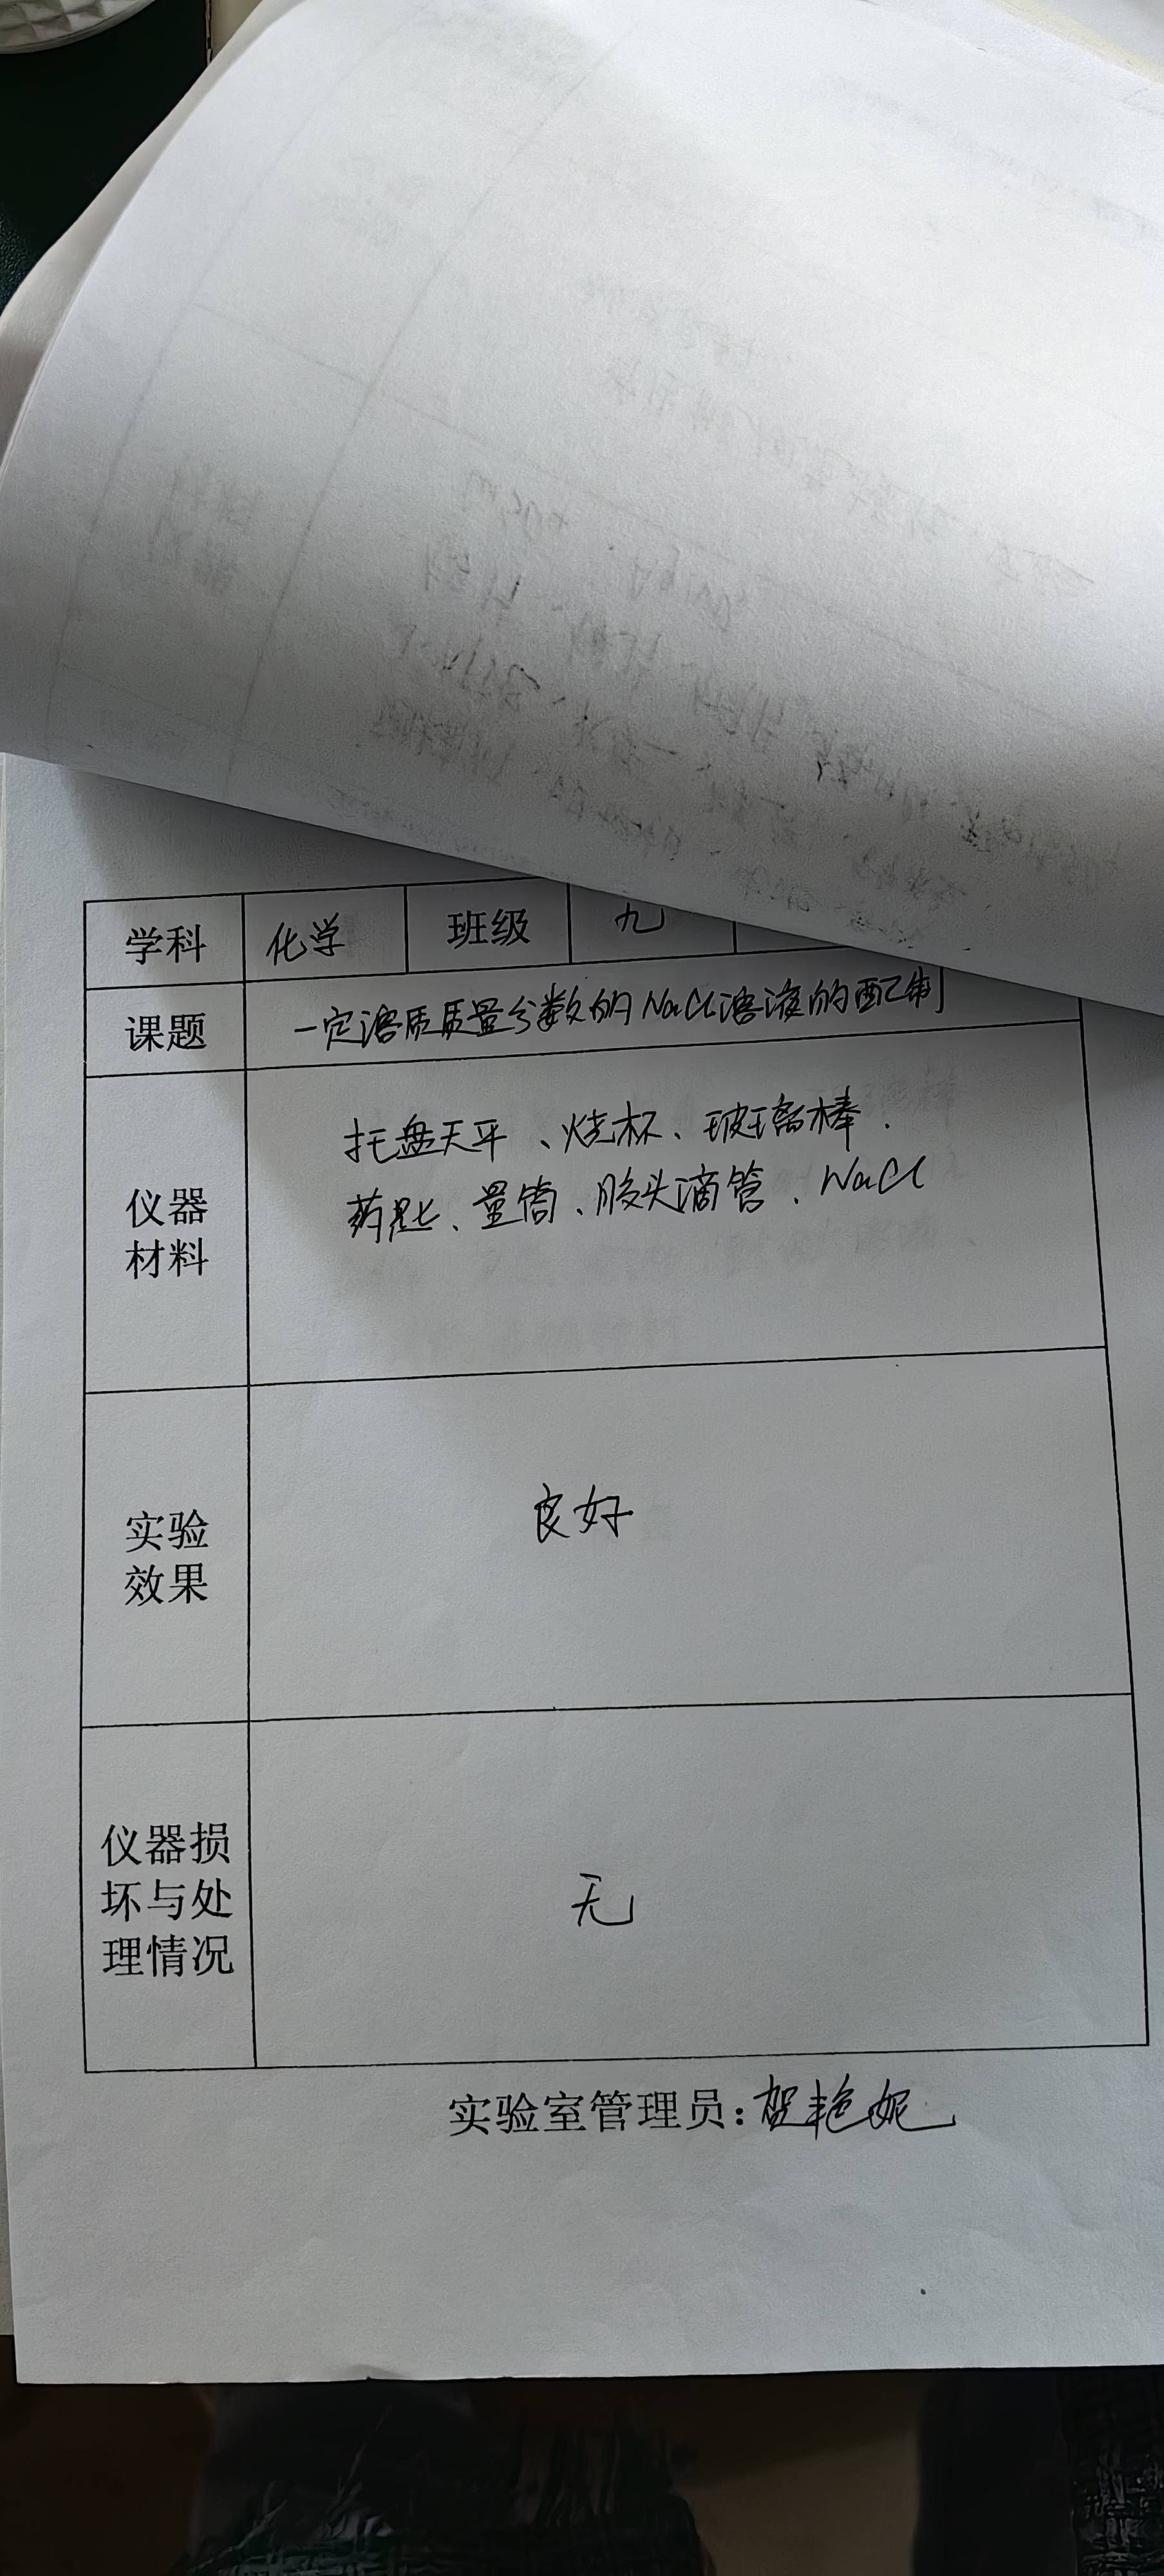 学科 化学 班级 九
课题 一定溶质质量分数的NaCl溶液的配制
托盘天平、烧杯、玻璃棒.
仪器 药匙、量筒、胶头滴管、NaCl
材料
实验 良好
效果
仪器损
坏与处 无
理情况
实验室管理员:贺艳妮